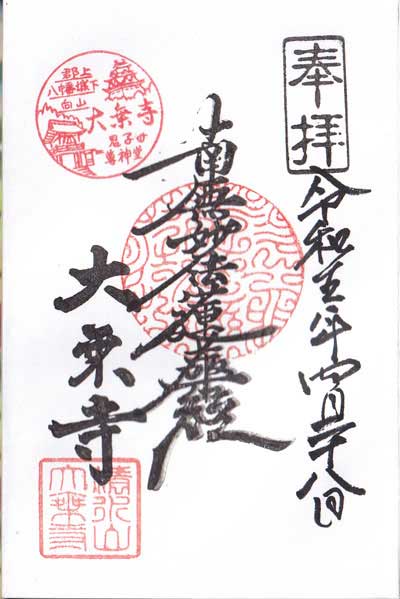 奉拝
令和五年四月廿八日
南無妙法蓮華経
郡上
八幡城下
向山
大乗寺
鬼子母
尊神堂
大乗寺
大乗寺